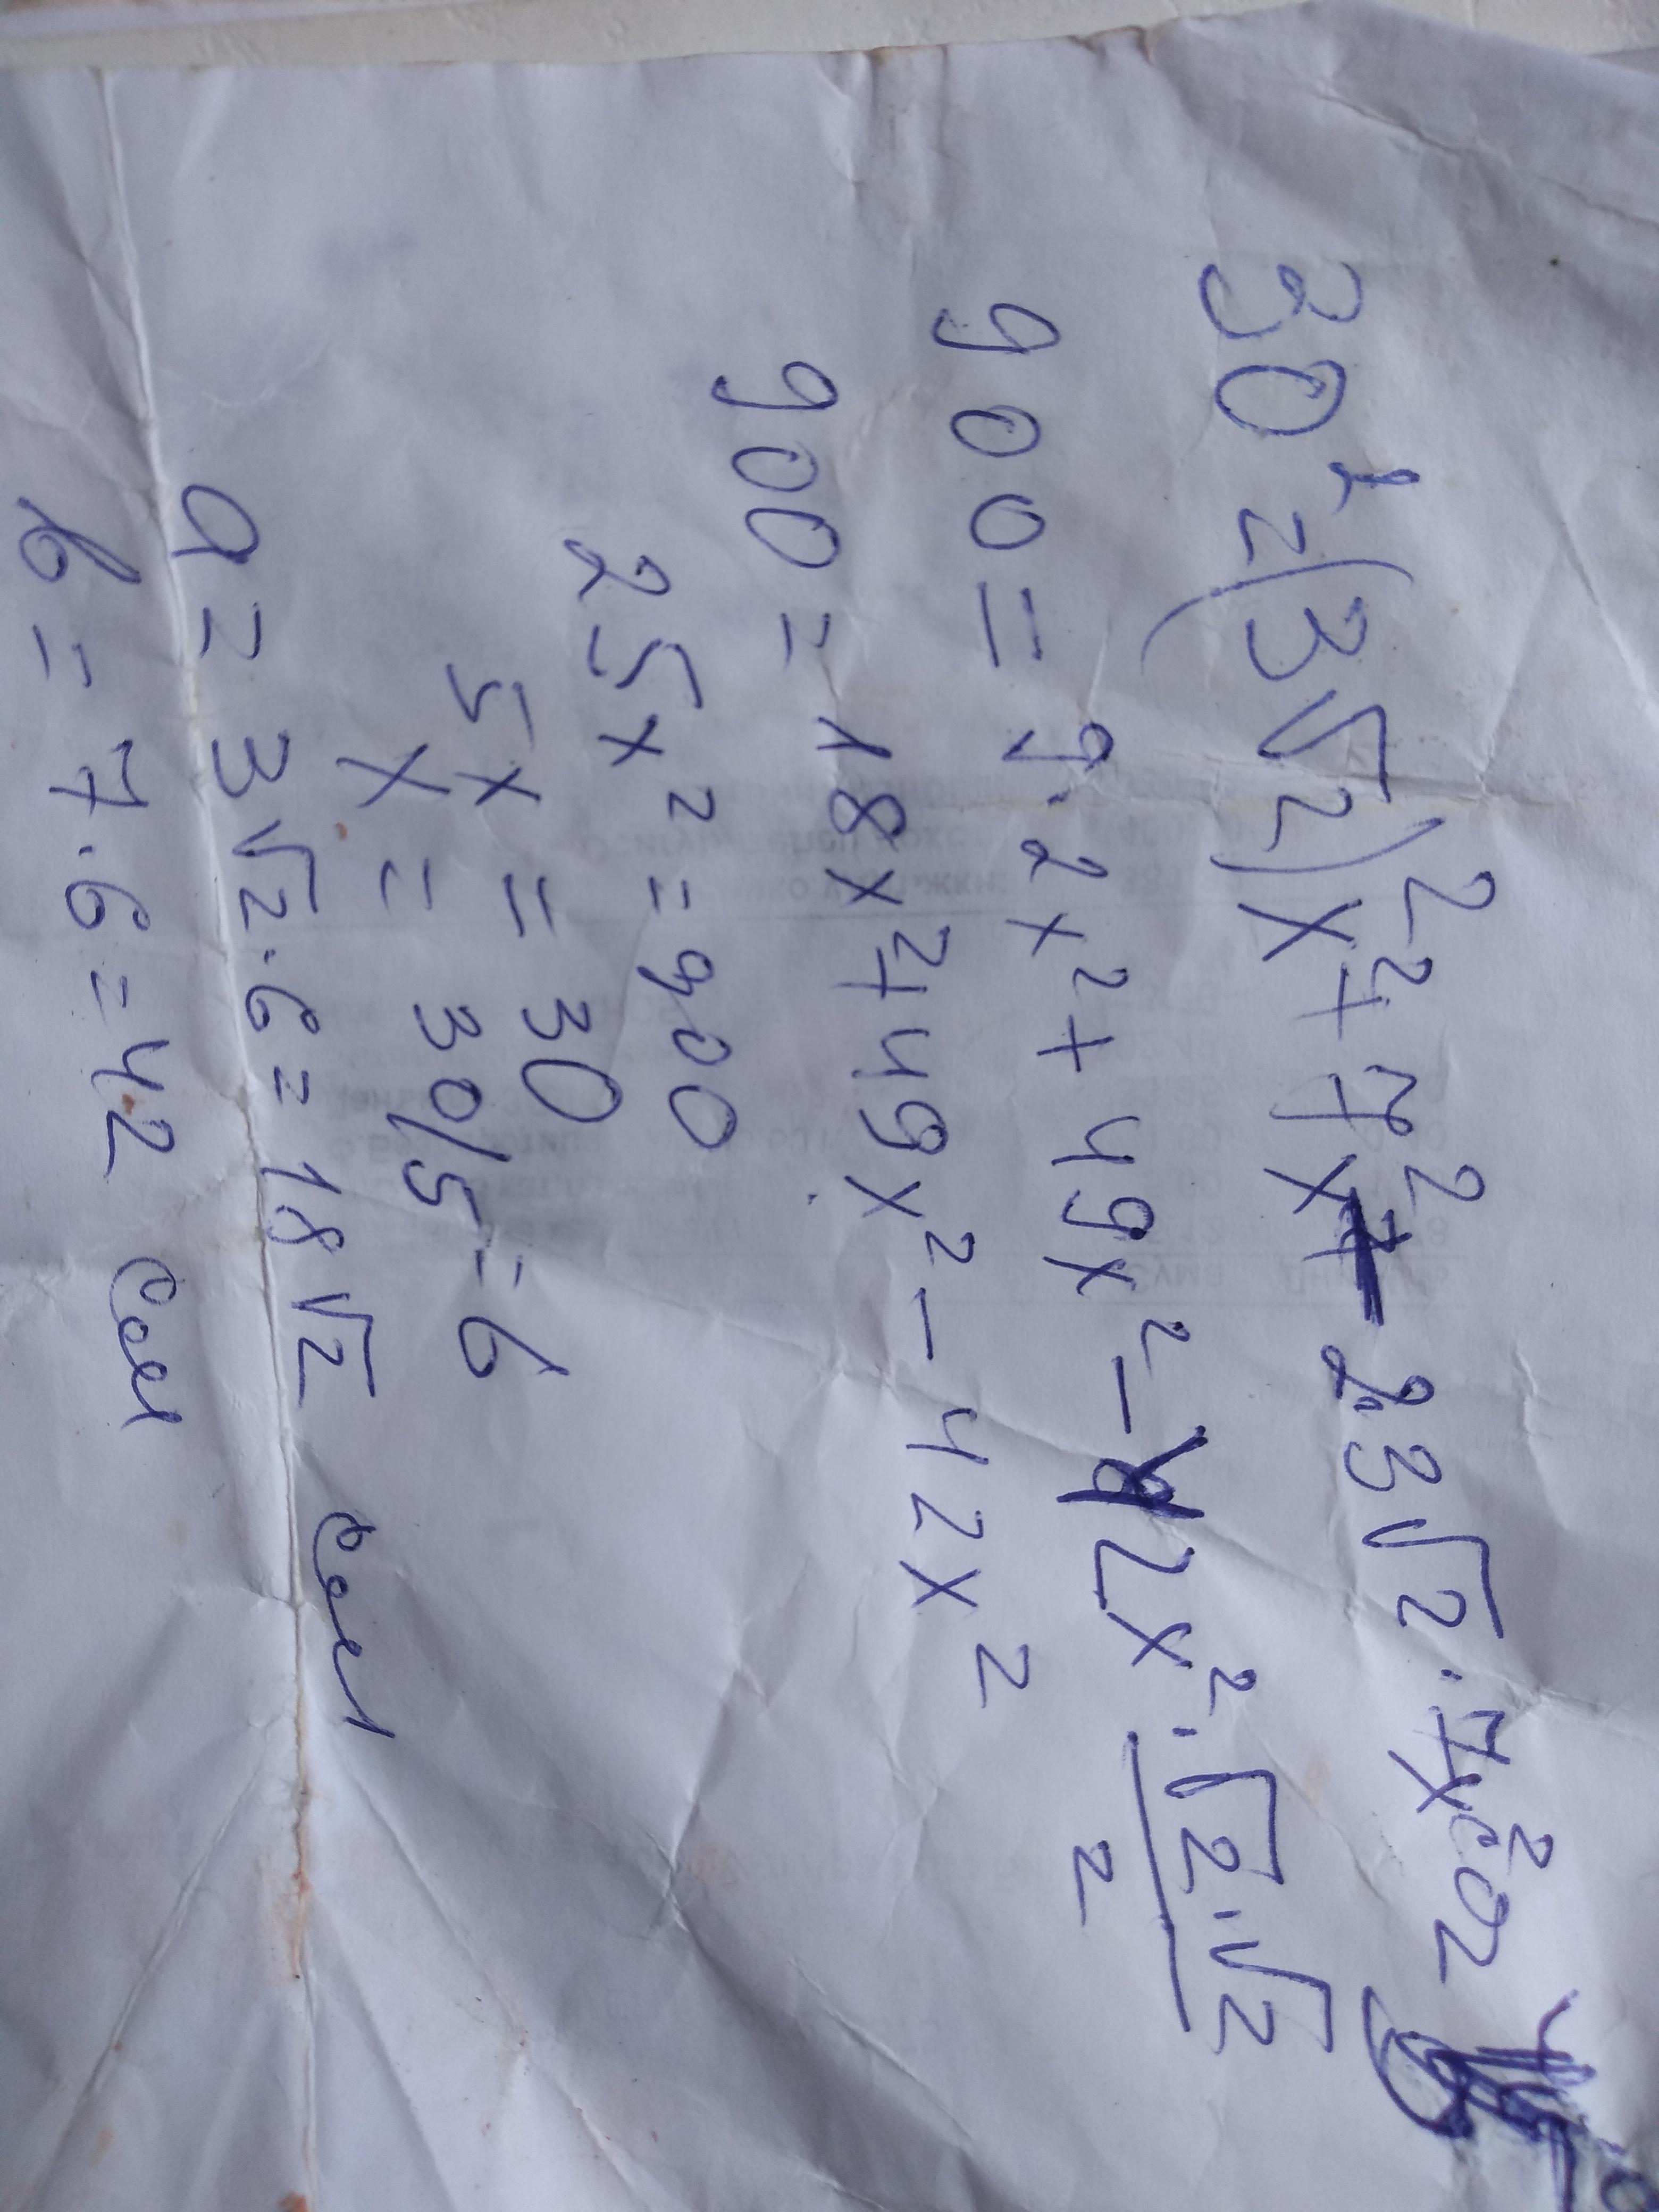 30² = (3√2)²x² + 7²x² - 2·3√2·7x² cos
900 = 9·2x² + 49x² - 42x²·√2·√2/2
900 = 18x² + 49x² - 42x²
25x² = 900
5x = 30
x = 30/5 = 6
a = 3√2·6 = 18√2 см
b = 7·6 = 42 см